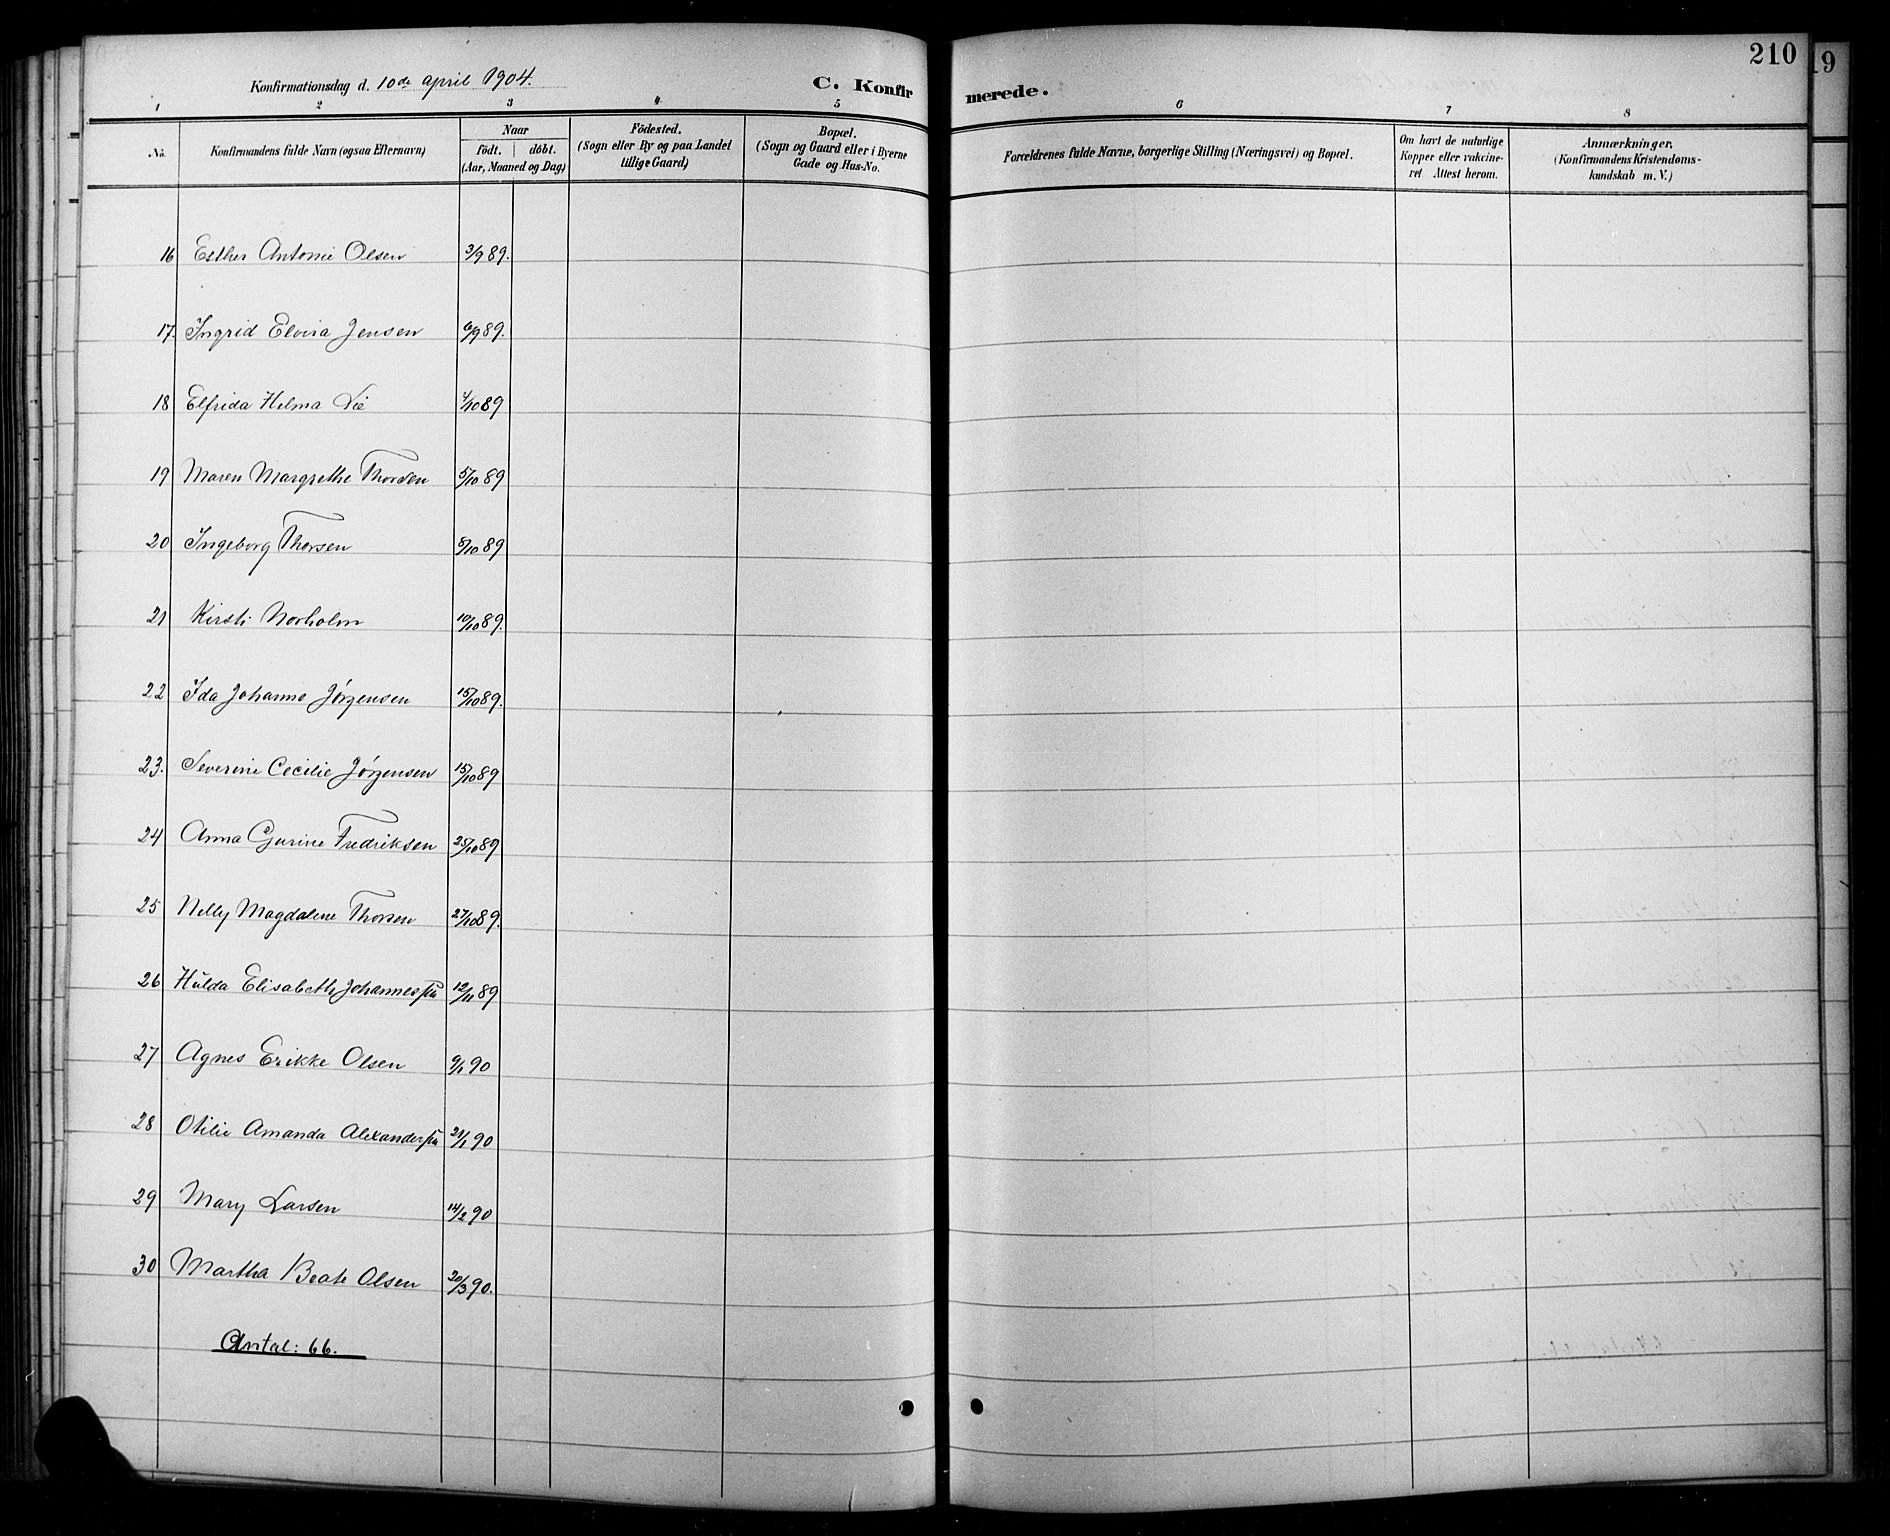 210
19
Konfirmationsdag d. 10de april 1904.
C. Konfirmerede.
1 2 3 4 5 6 7 8
No. Konfirmandens fulde Navn (ogsaa Efternavn) Naar födt. | döbt. (Aar, Maaned og Dag) Födested. (Sogn eller By og paa Landet tillige Gaard) Bopæl. (Sogn og Gaard eller i Byerne Gade og Hus-No. Forældrenes fulde Navne, borgerlige Stilling (Næringsvei) og Bopæl. Om havt de naturlige Kopper eller vakcineret Attest herom. Anmærkninger, (Konfirmandens Kristendomskundskab m. V.)
16 Esther Antonie Olsen 3/9 89.
17. Ingrid Elvira Jensen 6/9 89.
18 Elfrida Helma Lie 1/10 89
19 Maren Margrethe Thorsen 5/10 89
20 Ingeborg Thorsen 5/10 89
21 Kirsti Norholm 10/10 89.
22 Ida Johanne Jørgensen 15/10 89.
23. Severine Cecilie Jørgensen 15/10 89
24 Anna Gurine Fredriksen 25/10 89
25 Nelly Magdalene Thorsen 27/10 89.
26 Hulda Elisabeth Johannessen 12/11 89
27 Agnes Erikke Olsen 9/1 90
28 Otilie Amanda Alexandersen 21/1 90
29 Mary Larsen 14/2 90
30 Martha Beate Olsen 20/3 90.
Antal: 66.